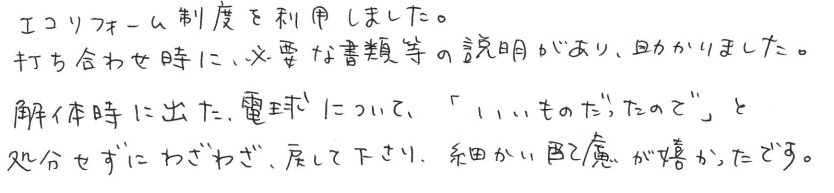 エコリフォーム制度を利用しました。
打ち合わせ時に、必要な書類等の説明があり、助かりました。
解体時に出た、電球について、「いいものだったので」と
処分せずにわざわざ、戻して下さり、細かい配慮が嬉かったです。